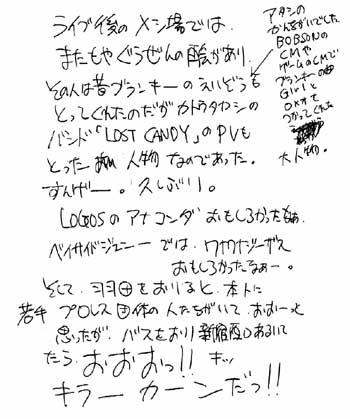 ライブ後のメシ場では、
またもやぐうぜんの出会があり
その人は昔ブランキーのえいぞうも
とってくれたのだがカトウタカシの
バンド「LOST CANDY」のPVも
とった 人物なのであった。
すんげー。久しぶり。
LOGOSのアナコンダおもしろかったなぁ。
ベイサイドジェニーでは、ワナワナジーザス
おもしろかったなぁー。
そして、羽田をおりると、本人に
若手プロレス団体の人たちがいて、おおーっと
思ったが、バスをおり新宿西口あるいて
たら、おおおっ!! キッ、
キラーカーンだっ!!
アタシの
かんちがいでした
BOBSONの
CMや
ゲームのCMで
ブランキーの曲
Girlと
OKオモ
つかってくれた
大人物。